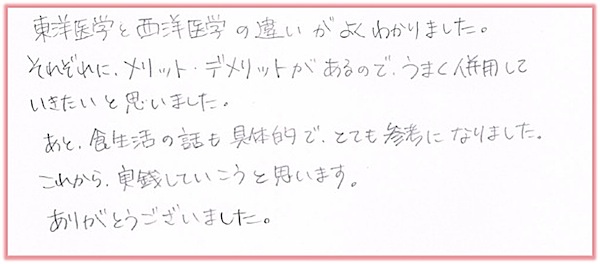 東洋医学と西洋医学の違いがよくわかりました。
それぞれに、メリット・デメリットがあるので、うまく併用して
いきたいと思いました。
あと、食生活の話も具体的で、とても参考になりました。
これから、実銭していこうと思います。
ありがとうございました。